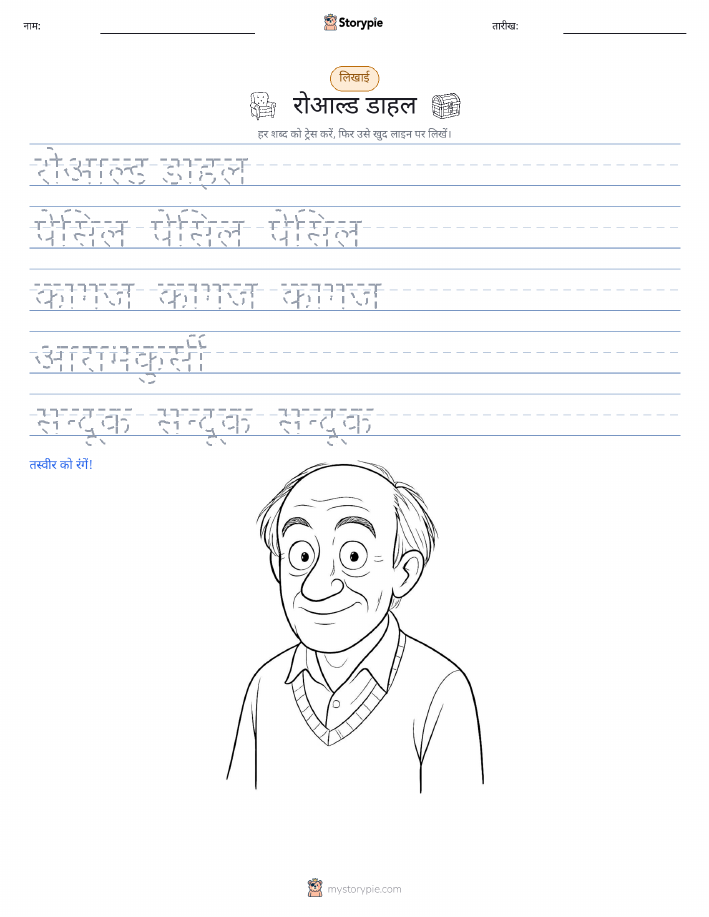 नाम:
Storypie
तारीख:
लिखाई
रोआल्ड डाहल
हर शब्द को ट्रेस करें, फिर उसे खुद लाइन पर लिखें।
रोआल्ड डाहल
पेंसिल पेंसिल पेंसिल
कागज कागज कागज
आरामकुर्सी
सन्दूक सन्दूक सन्दूक
तस्वीर को रंगें!
mystorypie.com